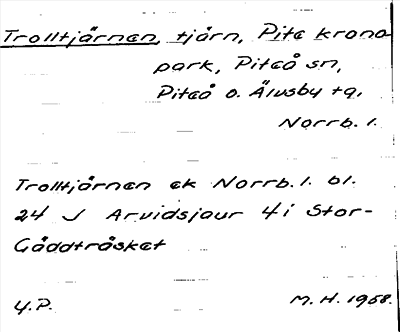 Trolltjärnen, tjärn, Pite krono-
park, Piteå sn,
Piteå o. Älvsby tg,
Norrb. l.
Trolltjärnen ek Norrb. l. bl.
24 J Arvidsjaur 4 i Stor-
Gäddträsket
4.P.
M. H. 1958.